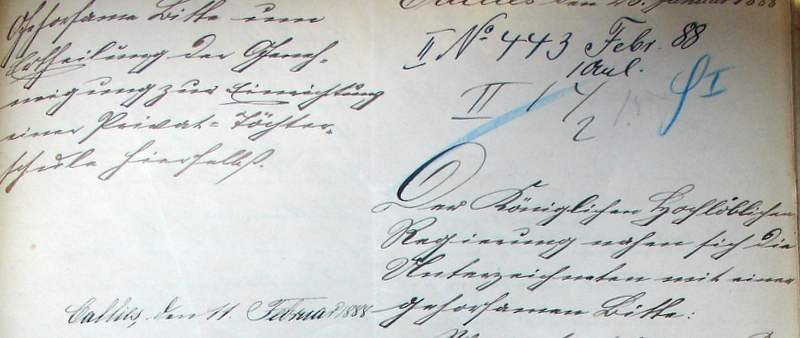 Gehorsame Bitte um
Ertheilung der Geneh-
migung zur Einrichtung
einer Privat-Töchter-
schule hierselbst.
Callies, den 11. Februar 1888.
Callies den 26. Januar 1888
II No 443 Febr. 88
1 Anl.
II 17
2
I
Der Königlichen Hochlöblichen
Regierung nahen sich die
Unterzeichneten mit einer
gehorsamen Bitte: